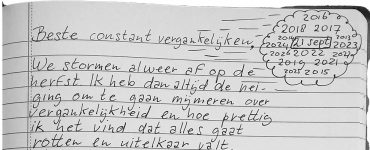 2016
2018 2017
2014 2013
2024 21 sept 2023
2026 2022 2022
2019 2021
2025 2015
Beste constant vergankelijken,
We stormen alweer af op de
herfst. Ik heb dan altijd de nei-
ging om te gaan mijmeren over
vergankelijkheid en hoe prettig
ik het vind dat alles gaat
rotten en uitelkaar valt.